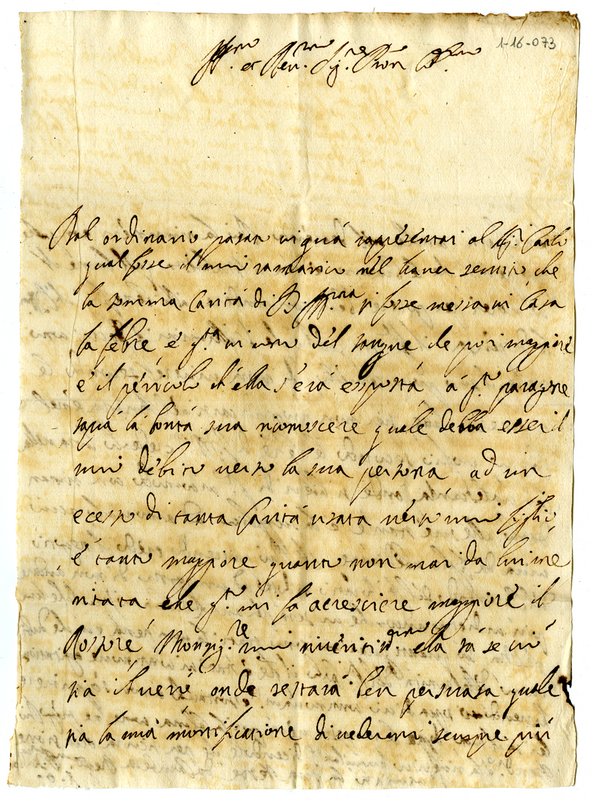 1-16-073
Ill.mo et Rev.mo Sig.re Pron Col.mo
Dal ordinario pasato quà rapresentai al Sig.r Carlo
qual fosse il mio ramarico nel haver sentito che
la somma Carità di V. S. Ill.ma si fosse messa in Casa
la febre è q.to in um del sangue che poi maggiore
è il pericolo ch'ella s'era esposta à q.to paragone
saprà la bontà sua riconoscere quale debba esser il
mio debito verso la sua persona ad un
ecesso di tanta Carità usata verso mio figlio
è tanto maggiore quanto non mai da lui me
ritata che q.to mi fà acresciere maggiore il
Rospre Monsig.re mio riveritis.mo ella sà se vi
sia il vero onde restarà ben persuasa quale
sia la mia mortificatione di vedermi sempre più